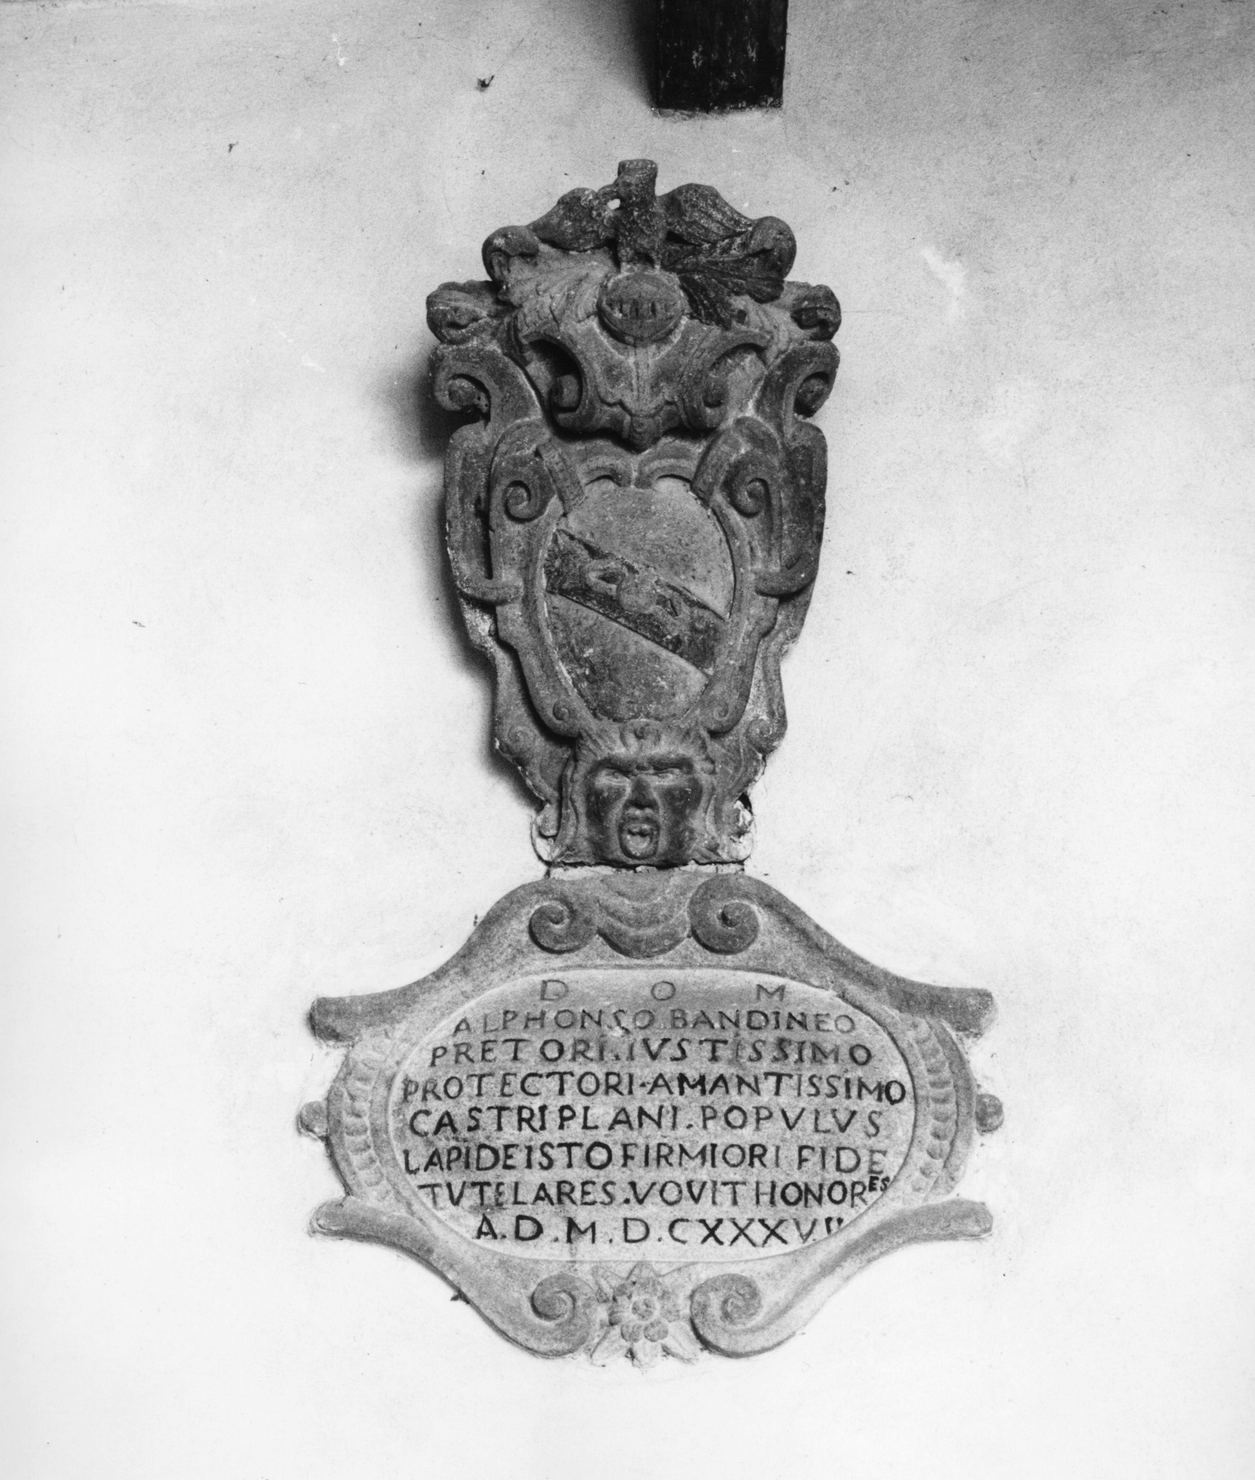 D O M
ALPHONSO BANDINEO
PRETORI.IVSTISSIMO
PROTECTORI·AMANTISSIMO
CASTRIPLANI.POPVLVS
LAPIDEISTO FIRMIORI FIDE
TVTELARES.VOVIT HONORES
A.D.M.D.CXXXVII